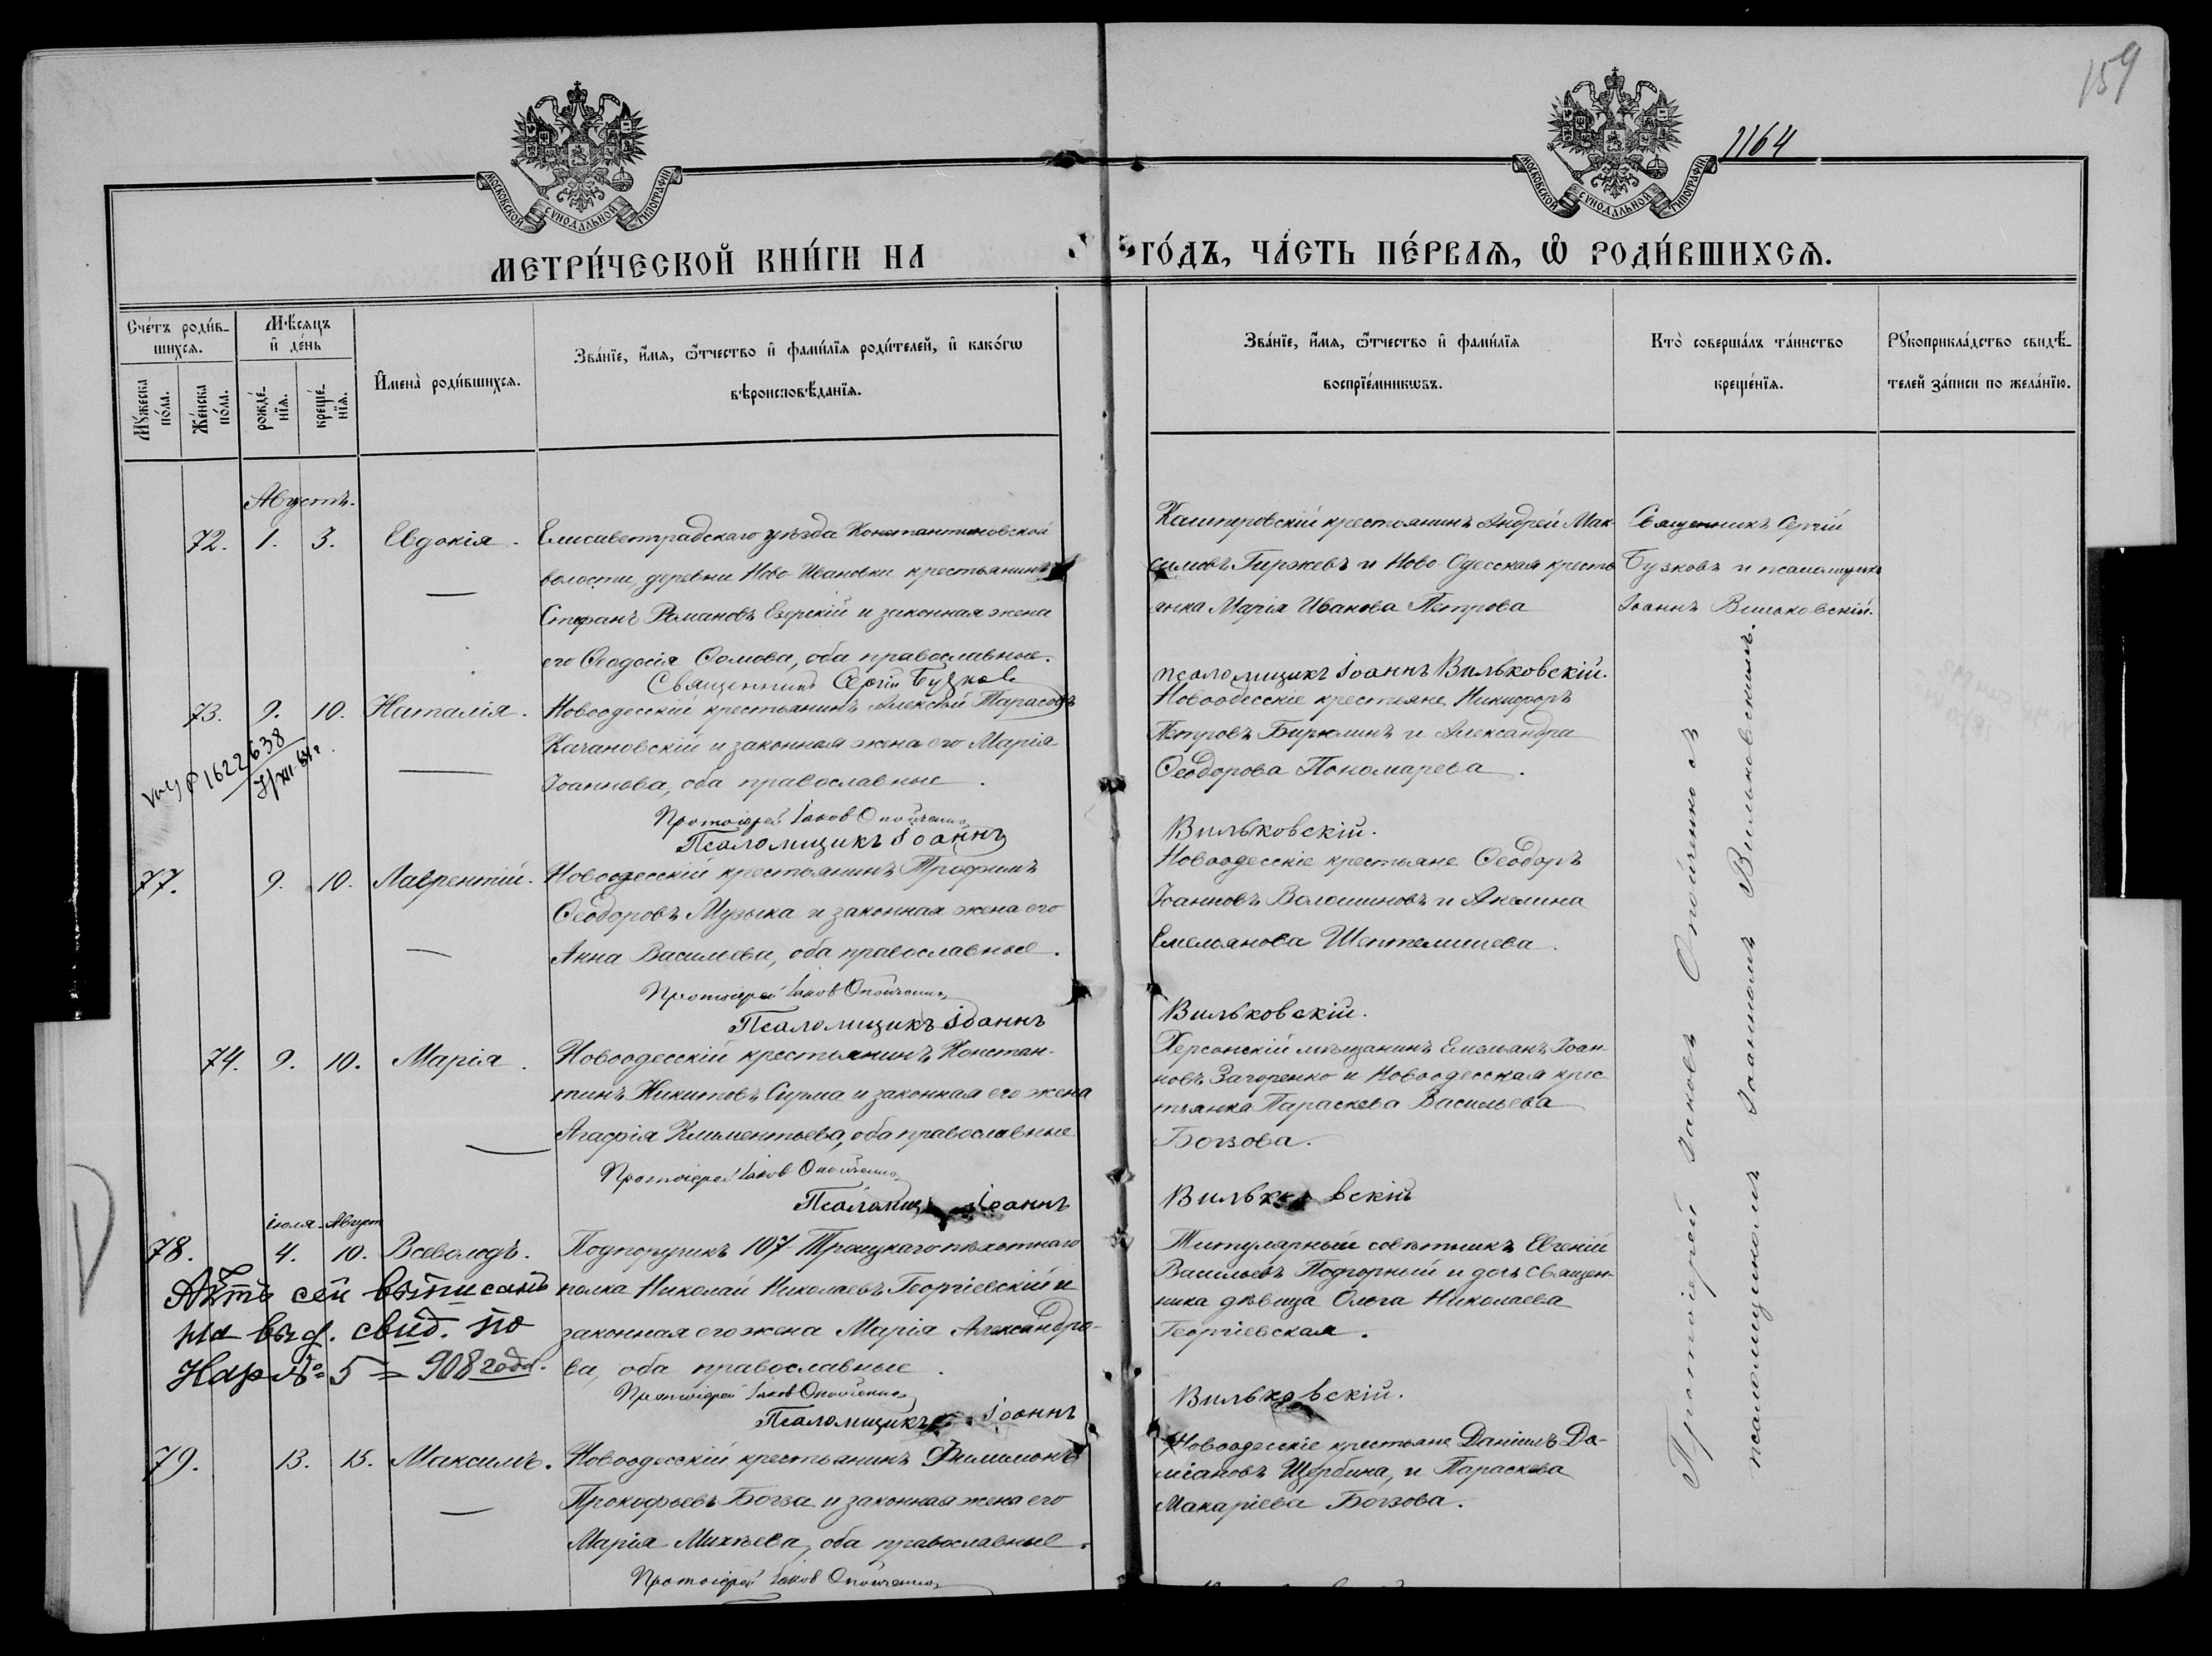 159
1164
МОСКОВСКОЙ СѴНОДАЛЬНОЙ ТИПОГРАФІИ
МОСКОВСКОЙ СѴНОДАЛЬНОЙ ТИПОГРАФІИ
МЕТРИ́ЧЕСКОЙ КНИ́ГИ НА ГО́ДЪ, ЧА́СТЬ ПЕ́РВАѦ, Ѽ РОДИ́ВШИХСѦ.
Сче́тъ роди́в-
шихсѧ.
Мѣсѧцъ
и де́нь
Мꙋ́жеска
по́ла.
Же́нска
по́ла.
рожде́-
нїѧ.
креще́-
нїѧ.
Имена̀ роди́вшихсѧ.
Зва́нїе, и́мѧ, ѿтчество и фами́лїѧ роди́телей, и како́гѡ
вѣроисповѣ́данїѧ.
Зва́нїе, и́мѧ, ѿтчество и фами́лїѧ
воспрїе́мникѡвъ.
Кто̀ соверша́лъ та́инство
креще́нїѧ.
Рꙋкоприкла́дство свидѣ́-
телей за́писи по жела́нїю.
Августъ.
72. 1. 3. Евдокія.
Елисаветградскаго уѣзда Константиновской
волости, деревни Ново-Ивановки крестьянинъ
Стефанъ Романовъ Езерскій и законная жена
его Ѳеодосія Ѳомова, оба православные.
Священникъ Сергій Бузковъ
Касперовскій крестьянинъ Андрей Мак-
симовъ Гиржевъ и Ново-Одесская кресть
янка Марія Иванова Петрова
псаломщикъ Іоаннъ Вильковскій.
Священникъ Сергій
Бузковъ и псаломщикъ
Іоаннъ Вильковскій.
73. 9. 10. Наталія.
1622638
Новоодесскій крестьянинъ Алексѣй Тарасовъ
Качановскій и законная жена его Марія
Іоаннова, оба православные.
Протоіерей Іаковъ Опойченко
Псаломщикъ Іоаннъ
Новоодесскіе крестьяне Никифоръ
Петровъ Бирюлинъ и Александра
Ѳеодорова Пономарева.
Вильковскій.
77. 9. 10. Лаврентій.
Новоодесскій крестьянинъ Трофимъ
Ѳеодоровъ Музыка и законная жена его
Анна Васильева, оба православные.
Протоіерей Іаковъ Опойченко
Псаломщикъ Іоаннъ
Новоодесскіе крестьяне Ѳеодоръ
Іоанновъ Волошиновъ и Акилина
Емельянова Шептелишева.
Вильковскій.
74. 9. 10. Марія.
Новоодесскій крестьянинъ Констан-
тинъ Никитовъ Сирма и законная его жена
Агафія Климентьева, оба православные
Протоіерей Іаковъ Опойченко
Псаломщ Іоаннъ
Херсонскій мѣщанинъ Емельянъ Іоан-
новъ Загоренко и Новоодесская крес
тьянка Параскева Васильева
Богзова.
Вильковскій
іюля. Август
78. 4. 10. Всеволодъ.
Актъ сей выписанъ
на выд. свид. по
Нар № 5 = 908 года.
Подпоручикъ 107-Троицкаго пѣхотнаго
полка Николай Николаевъ Георгіевскій и
законная его жена Марія Александро-
ва, оба православные.
Протоіерей Іаковъ Опойченко
Псаломщикъ Іоаннъ
Титулярный совѣтникъ Евгеній
Васильевъ Подгорный и дочь Священ-
ника дѣвица Ольга Николаева
Георгіевская.
Вильковскій.
79. 13. 15. Максимъ.
Новоодесскій крестьянинъ Филимонъ
Прокофьевъ Богза и законная жена его
Марія Михѣева, оба православные.
Протоіерей Іаковъ Опойченко
Новоодесскіе крестьяне Даніилъ Да-
міановъ Щербина, и Параскева
Макаріева Богзова.
Протоіерей Іаковъ Опойченко съ
псаломщикомъ Іоанномъ Вильковскимъ.